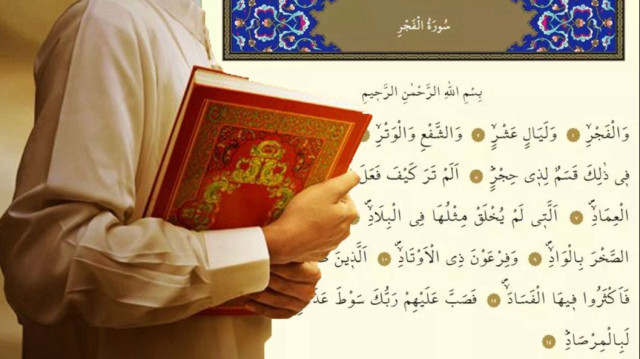 سُورَةُ الْفَجْرِ
بِسْمِ اللهِ الرَّحْمٰنِ الرَّح۪يمِ
وَالْفَجْرِۙ وَلَيَالٍ عَشْرٍۙ وَالشَّفْعِ وَالْوَتْرِۙ
ف۪ي ذٰلِكَ قَسَمٌ لِذ۪ي حِجْرٍۜ اَلَمْ تَرَ كَيْفَ فَعَلَ
الْعِمَادِۙۖ اَلَّت۪ي لَمْ يُخْلَقْ مِثْلُهَا فِي الْبِلَادِۙۖ
الصَّخْرَ بِالْوَادِۙۖ وَفِرْعَوْنَ ذِي الْاَوْتَادِۙۖ اَلَّذ۪ينَ
فَاَكْثَرُوا ف۪يهَا الْفَسَادَۙۖ فَصَبَّ عَلَيْهِمْ رَبُّكَ سَوْطَ
لَبِالْمِرْصَادِۜ